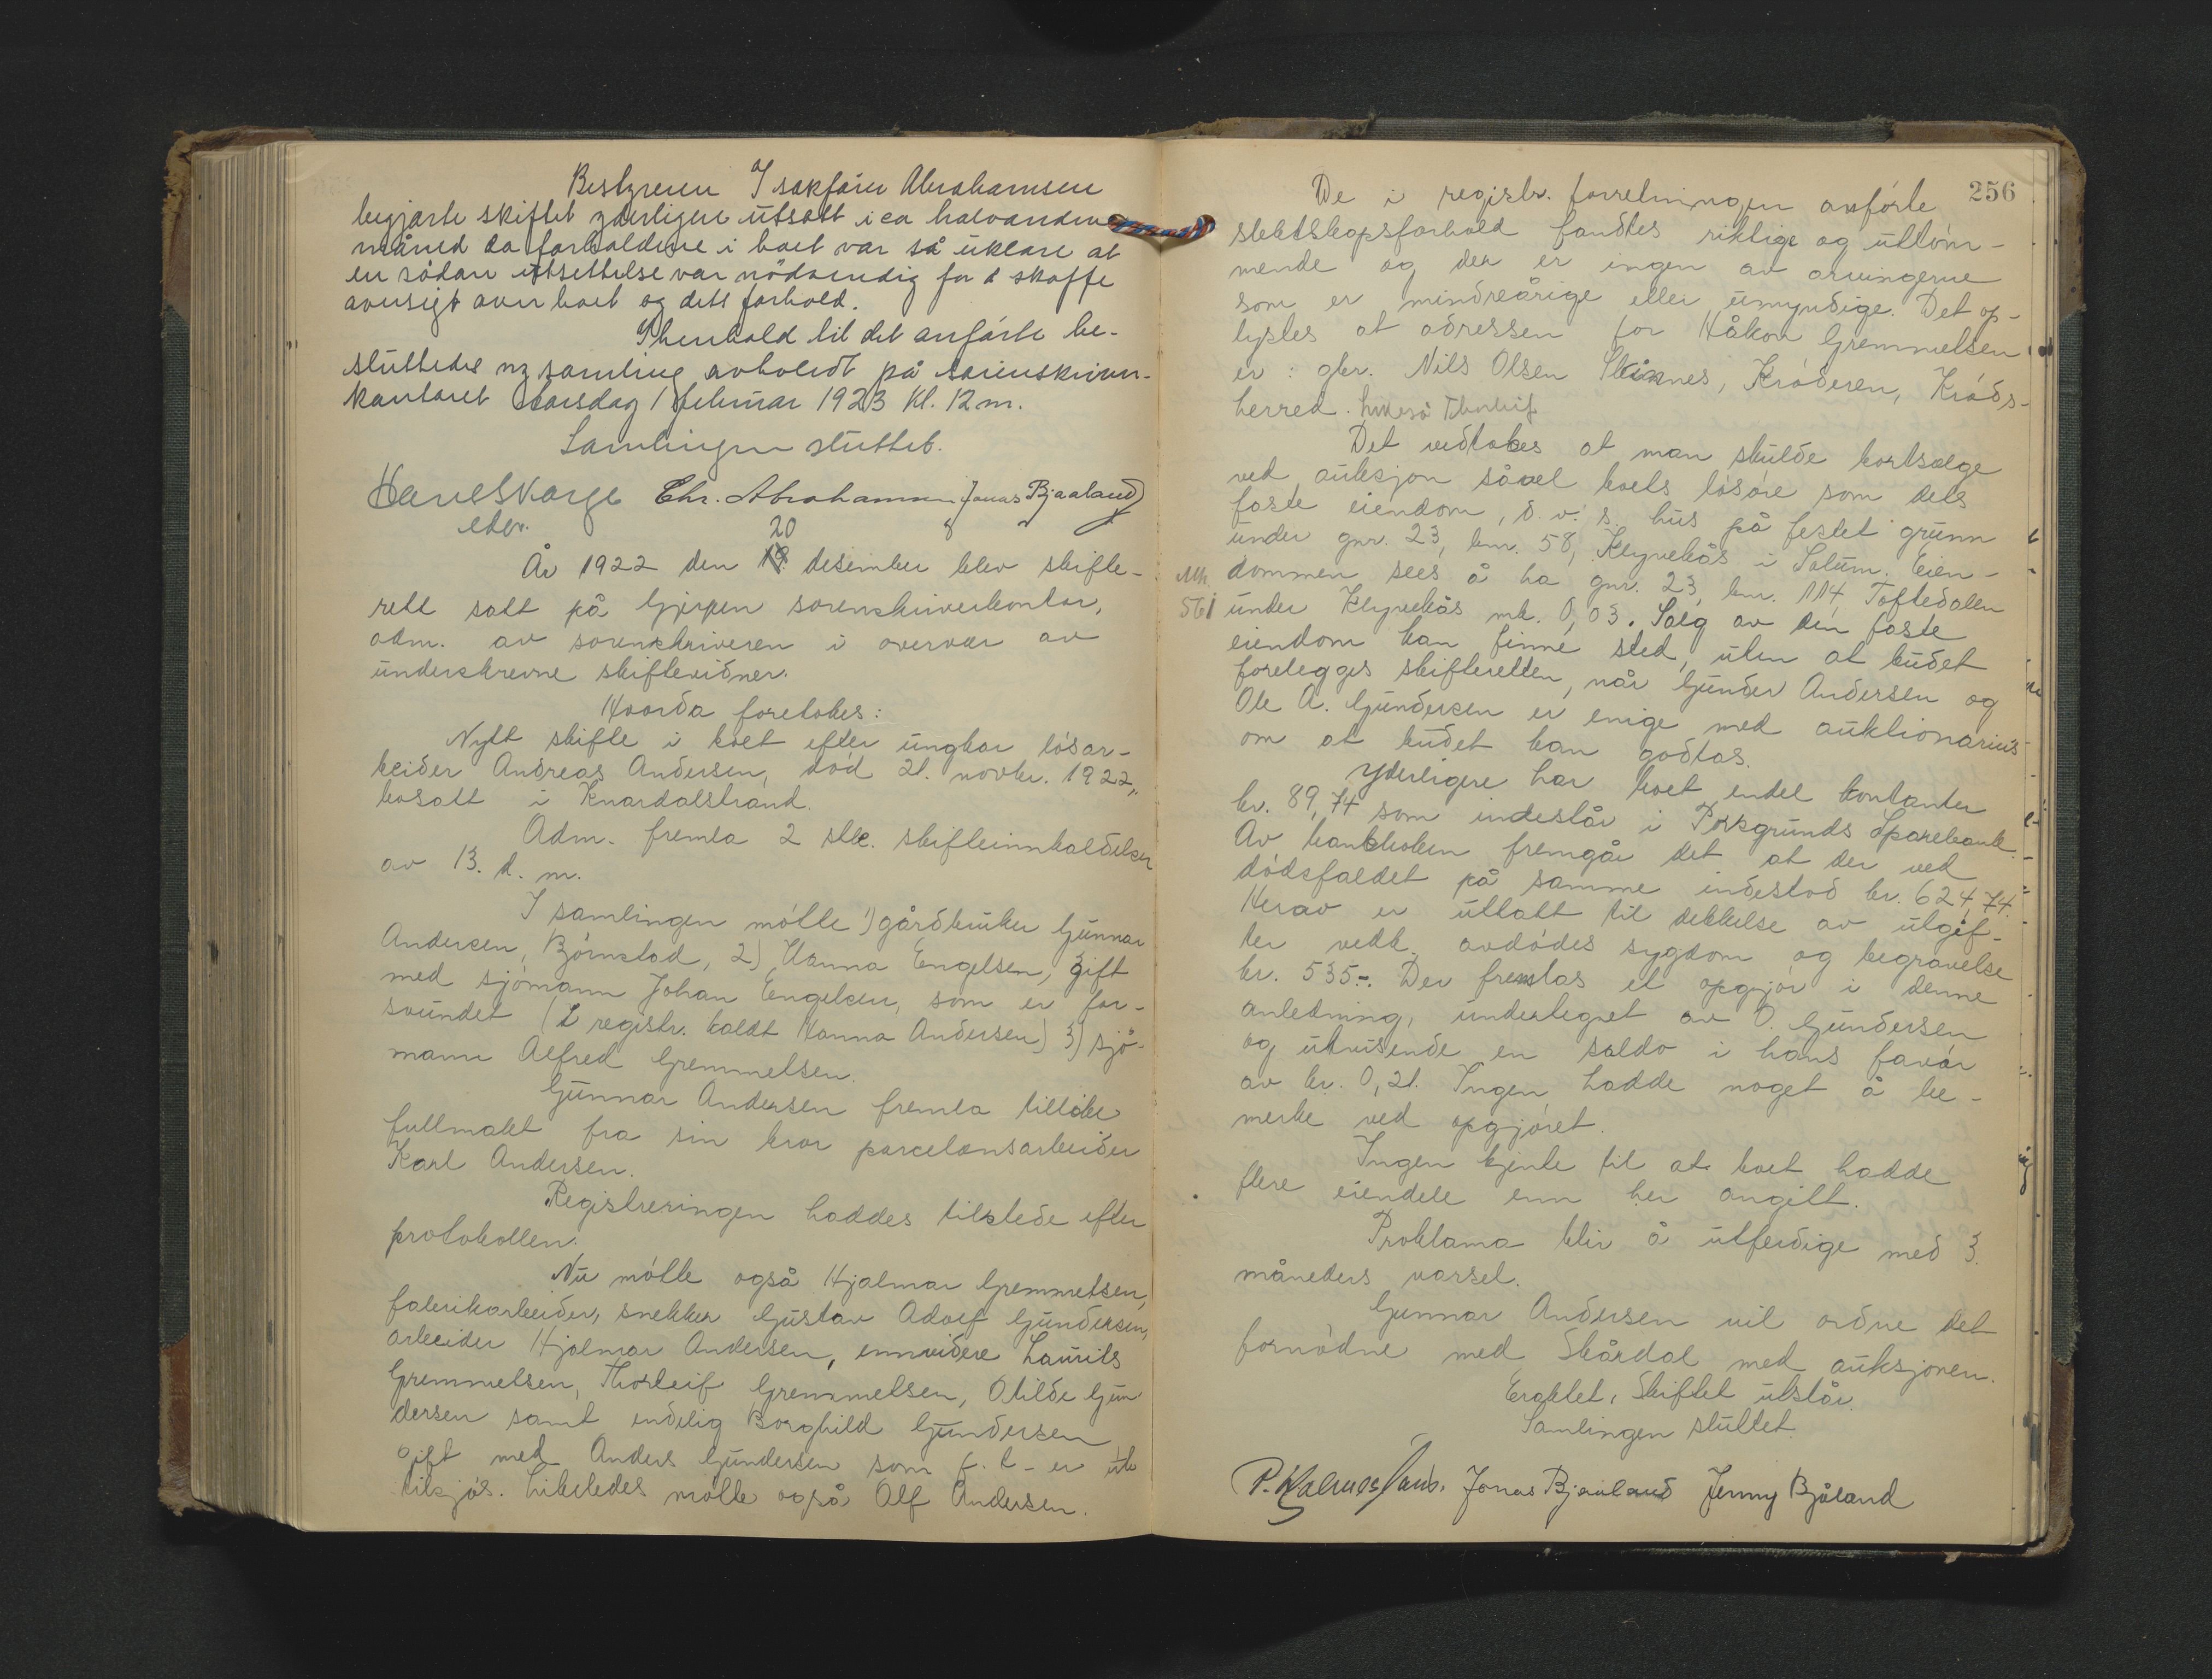 Bestyreren O sakfører Abrahamsen
begjærte skiftet yderligere utsatt i ca halvanden
måned da forholdene i boet var så uklare at
en sådan utsettelse var nødvendig for å skaffe
oversigt over boet og dets forhold.
I henhold til det anførte be-
sluttedes ny samling avholdt på sorenskriver-
kontoret torsdag 1 februar 1923 kl. 12 m.
Samlingen sluttet.
Chr. Abrahamsen Jonas Bjaaland
edsv.
20
År 1922 den 19. desember blev skifte-
rett satt på Gjerpen sorenskriverkontor,
adm. av sorenskriveren i overvær av
underskrevne skiftevidner.
Hvorda foretokes:
Nytt skifte i boet efter ungkar løsar-
beider Andreas Andersen, død 21. novbr. 1922,
bosatt i Knardalstrand.
Adm. fremla 2 stk. skifteinnkaldelser
av 13. d. m.
I samlingen møtte 1) gårdbruker Gunnar
Andersen, Bjørnstad, 2) Hanna Engelsen, gift
med sjømann Johan Engelsen, som er for-
svundet (i registr. kaldt Hanna Andersen) 3) sjø-
mann Alfred Gremmelsen.
Gunnar Andersen fremla tillike
fullmakt fra sin bror porcelænsarbeider
Karl Andersen.
Registreringen haddes tilstede efter
protokollen.
Nu møtte også Hjalmar Gremmelsen,
fabrikarbeider, snekker Gustav Adolf Gundersen,
arbeider Hjalmar Andersen, ennvidere Laurits
Gremmelsen, Thorleif Gremmelsen, Otilde Gun-
dersen samt endelig Borghild Gundersen
gift med Anders Gundersen som f. t. er ute
tilsjøs. Likeledes møtte også Olf Andersen.
256
De i registr. forretningen anførte
slektskapsforhold fandtes riktige og uttøm-
mende og der er ingen av arvingerne
som er mindreårige eller umyndige. Det op-
lystes at adressen for Håkon Gremmelsen
er: gbr. Nils Olsen Slåknes, Krøderen, Krøds-
herred. Thorleif
Det vedtokes at man skulde bortselge
ved auksjon såvel boets løsøre som dets
faste eiendom, d. v. s. hus på festet grunn
under gnr. 23, bnr. 58, Klyvekås i Solum. Eien-
dommen sees å ha gnr. 23, bnr. 114, Toftedalen
561 under Klyvekås mk. 0,03. Salg av den faste
eiendom kan finne sted, uten at budet
forelegges skifteretten, når Gunder Andersen og
Ole A. Gundersen er enige med auktionarius
om at budet kan godtas.
Yderligere har boet endel kontanter
kr. 89,74 som indestår i Porsgrunds Sparebank.
Av bankboken fremgår det at der ved
dødsfaldet på samme indestod kr. 624,74.
Herav er uttatt til dekkelse av utgif-
ter vedk. avdødes sygdom og begravelse
kr. 535-. Der fremlas et opgjør i denne
anledning, undertegnet av O. Gundersen
og utvisende en saldo i hans favør
av kr. 0,21. Ingen hadde noget å be-
merke ved opgjøret.
Ingen kjente til at boet hadde
flere eiendele enn her angitt.
Proklama blir å utferdige med 3
måneders varsel.
Gunnar Andersen vil ordne det
fornødne med Skårdal med auksjonen.
Eraktet: Skiftet utstår.
Samlingen sluttet.
Jonas Bjaaland Jenny Bjåland